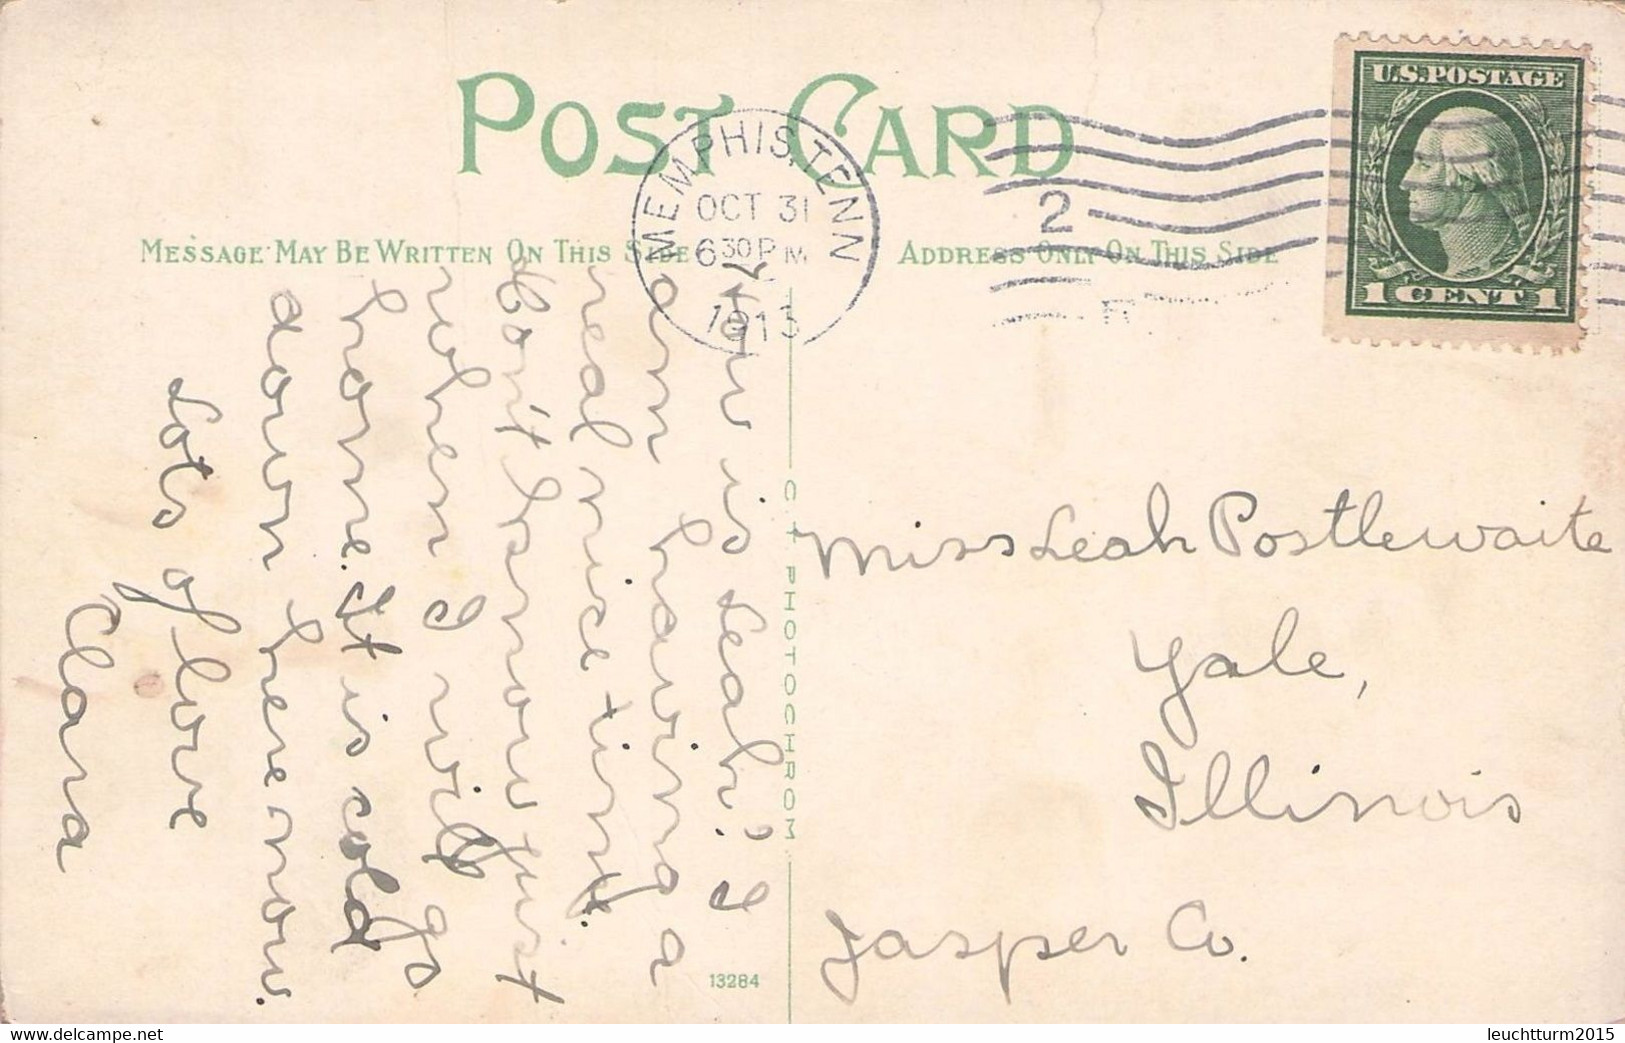 POST CARD
MEMPHIS, TENN
OCT 31
6 30 PM
1913
2
U.S. POSTAGE
1 CENT 1
MESSAGE MAY BE WRITTEN ON THIS SIDE
ADDRESS ONLY ON THIS SIDE
How is Leah? I
am having a
real nice time.
Don't know just
when I will go
home. It is cold
down here now.
Lots of love
Clara
C. T. PHOTOCHROM
13284
Miss Leah Postlewaite
Yale,
Illinois
Jasper Co.
Delcampe.net
leuchtturm2015